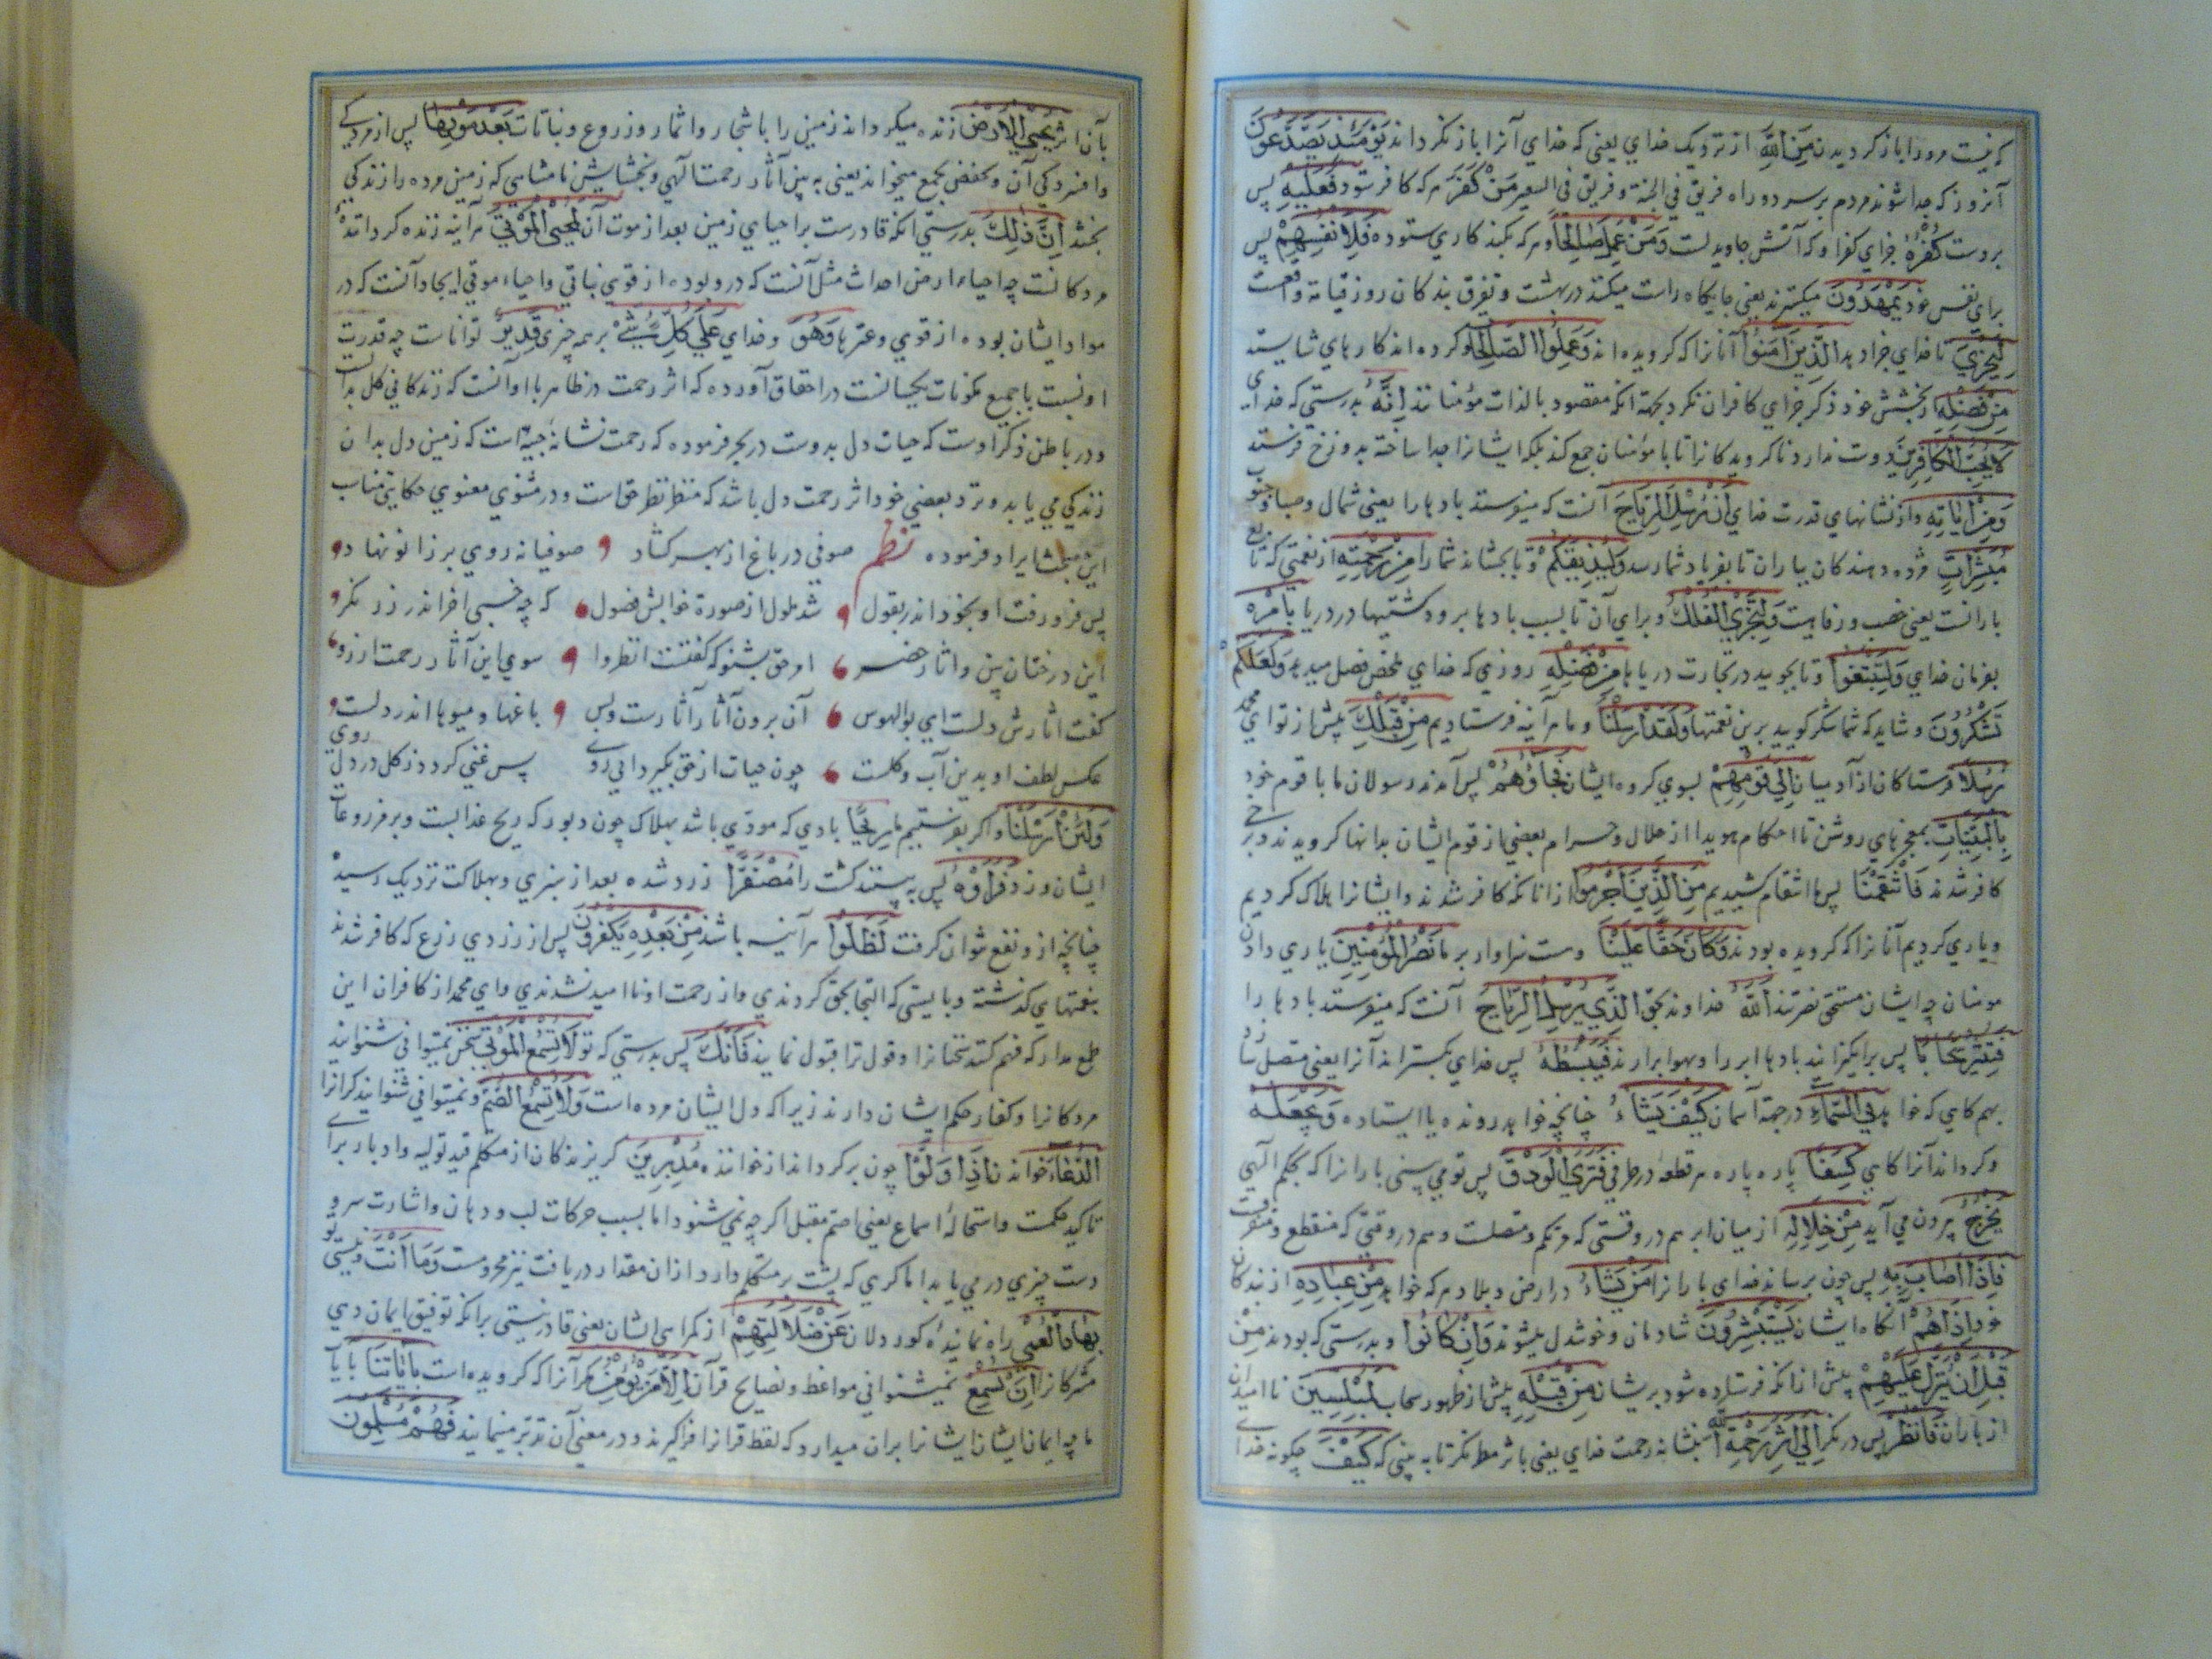 که نیست مر ورا باز کردیدن مِنَ اللّٰهِ از نزدیک خدای یعنی که خدای آنرا باز نکرداند یَوْمَئِذٍ یَصَّدَّعُونَ
آنروز که جدا شوند مردم بر سر دو راه فریق فی الجنة و فریق فی السعیر مَنْ کَفَرَ هر که کافر شود فَعَلَیْهِ پس
بروست کُفْرُهُ جزای کفر او که آتش جاویدست وَمَنْ عَمِلَ صَالِحًا و هر که بکند کاری ستوده فَلِاَنْفُسِهِمْ پس
برای نفس خود یَمْهَدُونَ میکسترند یعنی جایکاه راست میکند در بهشت و تفرق بندکان روز قیامة واقعست
لِیَجْزِیَ تا خدای جزا دهد الَّذِینَ اٰمَنُوا آنانرا که کرویده اند وَعَمِلُوا الصَّالِحَاتِ و کرده اند کارهای شایسته
مِنْ فَضْلِهِ از بخشش خود ذکر جزای کافران نکرد بجهة انکه مقصود بالذات مؤمنانند اِنَّهُ بدرستی که خدای
لَا یُحِبُّ الْکَافِرِینَ دوست ندارد ناکرویدکانرا تا با مؤمنان جمع کند بلکه ایشانرا جدا ساخته بدوزخ فرستد
وَمِنْ اٰیَاتِهِ و از نشانهای قدرت خدای اَنْ یُرْسِلَ الرِّیَاحَ آنست که میفرستد بادها را یعنی شمال و صبا و جنوب
مُبَشِّرَاتٍ مژده دهندکان بباران تا بفریاد شما رسد وَلِیُذِیقَکُمْ و تا بچشاند شما را مِنْ رَحْمَتِهِ از نعمتی که تابع
بارانست یعنی خصب و رفاهیت وَلِتَجْرِیَ الْفُلْکُ و برای آن تا بسبب بادها برود کشتیها در دریا بِاَمْرِهِ
بفرمان خدای وَلِتَبْتَغُوا و تا بجویید در تجارت دریاها مِنْ فَضْلِهِ روزی که خدای بمحض فضل میدهد وَلَعَلَّکُمْ
تَشْکُرُونَ و شاید که شما شکر کویید برین نعمتها وَلَقَدْ اَرْسَلْنَا و ما هر آینه فرستادیم مِنْ قَبْلِکَ پیش از تو ای محمد
رُسُلًا فرستادکان از آدمیان اِلٰی قَوْمِهِمْ بسوی کروه ایشان فَجَاؤُهُمْ پس آمدند رسولان ما با قوم خود
بِالْبَیِّنَاتِ بمعجزهای روشن تا احکام هویدا از حلال و حرام بعضی از قوم ایشان بدانها کرویدند و برخی
کافر شدند فَانْتَقَمْنَا پس ما انتقام کشیدیم مِنَ الَّذِینَ اَجْرَمُوا از آنانکه کافر شدند و ایشانرا هلاک کردیم
و یاری کردیم آنانرا که کرویده بودند وَکَانَ حَقًّا عَلَیْنَا و هست سزاوار بر ما نَصْرُ الْمُؤْمِنِینَ یاری دادن
مومنان چه ایشان مستحق نصرتند اَللّٰهُ خداوند بحق الَّذِی یُرْسِلُ الرِّیَاحَ آنست که میفرستد بادها را
فَتُثِیرُ سَحَابًا پس برانکیزانند بادها ابر را و بهوا برارند فَیَبْسُطُهُ پس خدای بکستراند آنرا یعنی متصل سازد
بهم کاهی که خواهد فِی السَّمَاءِ در جهة آسمان کَیْفَ یَشَاءُ چنانچه خواهد رونده یا ایستاده وَیَجْعَلُهُ
و کرداند آنرا کاهی کِسَفًا پاره پاره هر قطعه در طرفی فَتَرَی الْوَدْقَ پس تو می بینی بارانرا که بحکم الهی
یَخْرُجُ بیرون می آید مِنْ خِلَالِهِ از میان ابر هم در وقتی که متراکم و متصلست و هم در وقتی که منقطع و متفرقست
فَاِذَا اَصَابَ بِهِ پس چون برساند خدای بارانرا مَنْ یَشَاءُ در ارض و بلاد هر که خواهد مِنْ عِبَادِهِ از بندکان
خود اِذَا هُمْ آنکاه ایشان یَسْتَبْشِرُونَ شادمان و خوشدل میشوند وَاِنْ کَانُوا و بدرستی که بودند مِنْ
قَبْلِ اَنْ یُنَزَّلَ عَلَیْهِمْ پیش از انکه فرستاده شود بریشان مِنْ قَبْلِهِ پیش از ظهور سحاب لَمُبْلِسِینَ نا امیدان
از باران فَانْظُرْ پس در نکر اِلٰی اٰثَرِ رَحْمَةِ اللّٰهِ بنشانه رحمت خدای یعنی باثر مطر نکر تا به بینی که کَیْفَ چکونه خدا
بآن اثر یُحْیِی الْاَرْضَ زنده میکرداند زمین را باشجار و اثمار و زروع و نباتات بَعْدَ مَوْتِهَا پس از مردکی
و افسردکی آن و حفص بجمع میخواند یعنی به بین آثار رحمت الهی و بخشایش نامتناهی که زمین مرده را زندکی
بخشد اِنَّ ذٰلِکَ بدرستی انکه قادرست بر احیای زمین بعد از موت آن لَمُحْیِی الْمَوْتٰی هر آینه زنده کرداننده
مردکانست چه احیاء ارض احداث مثل آنست که درو بوده از قوی نباتی و احیاء موتی ایجاد آنست که در
مواد ایشان بوده از قوی وَهُوَ و خدای عَلٰی کُلِّ شَیْءٍ بر همه چیزی قَدِیرٌ تواناست چه قدرت
او نسبت با جمیع مکونات یکسانست در احقاق آورده که اثر رحمت در ظاهر باران است که زندکانی کل بدانست
و در باطن ذکر اوست که حیات دل بدوست در بحر فرموده که رحمت نشانه است که زمین دل بدان
زندکی می یابد و نزد بعضی خود اثر رحمت دل باشد که منظر نظر حق است و در مثنوی معنوی حکایتی مناسب
این مبحث ایراد فرموده نظم صوفی در باغ از بهر کشاد صوفیانه روی بر زانو نهاد
پس فرو رفت او بخود اندر نغول شد ملول از صورة خوابش فضول که چه خسبی آخر اندر رز نکر
این درختان بین و آثار خضر امر حق بشنو که کفتست انظروا سوی این آثار رحمت آر رو
کفت آثارش دلست ای بوالهوس آن برون آثار آثارست و بس باغها و میوها اندر دلست
عکس لطف او بدین آب و کلست چون حیات از حق بکیرد ای روی پس غنی کردد ز کل در دل روی
وَلَئِنْ اَرْسَلْنَا و اکر بفرستیم ما رِیحًا بادی که موذی باشد بهلاک چون دبور که ریح عذابست و بر مزروعات
ایشان وزد فَرَاَوْهُ پس به بینند کشت را مُصْفَرًّا زرد شده بعد از سبزی و بهلاکت نزدیک رسیده
چنانچه ازو نفع نتوان کرفت لَظَلُّوا هر آینه باشند مِنْ بَعْدِهِ یَکْفُرُونَ پس از زردی زرع که کافر شدند
بنعمتهای کذشته و بایستی که التجا بحق کردندی و از رحمت او ناامید نشدندی و ای محمد از کافران این
طمع مدار که فهم کنند سخنانرا و قول ترا قبول نمایند فَاِنَّکَ پس بدرستی که تو لَا تُسْمِعُ الْمَوْتٰی سخن نمیتوانی شنوانید
مردکانرا و کفار حکم ایشان دارند زیرا که دل ایشان مرده است وَلَا تُسْمِعُ الصُّمَّ و نمیتوانی شنوانید کرانرا
الدُّعَاءَ خواندن اِذَا وَلَّوْا چون برکردانند از خواننده مُدْبِرِینَ کریزندکان از متکلم قید تولیه و ادبار برای
تاکید حکمست و استحاله اسماع یعنی اصم مقبل اکر چه نمی شنود اما بسبب حرکات لب و دهان و اشارت سر و
دست چیزی در می یابد اما کری که پشت بر متکلم دارد از ان مقدار دریافت نیز محرومست وَمَا اَنْتَ و نیستی تو
بِهَادِ الْعُمْیِ راه نماینده کور دلان عَنْ ضَلَالَتِهِمْ از کمراهی ایشان یعنی قادر نیستی بر انکه توفیق ایمان دهی
مشرکانرا اِنْ تُسْمِعُ نمیشنوانی مواعظ و نصایح قرآن اِلَّا مَنْ یُؤْمِنُ مکر آنرا که کرویده است بِاٰیَاتِنَا بآیات
ما چه ایمان ایشان ایشانرا بران میدارد که لفظ قرآنرا فراکیرند و در معنی آن تدبر مینمایند فَهُمْ مُسْلِمُونَ